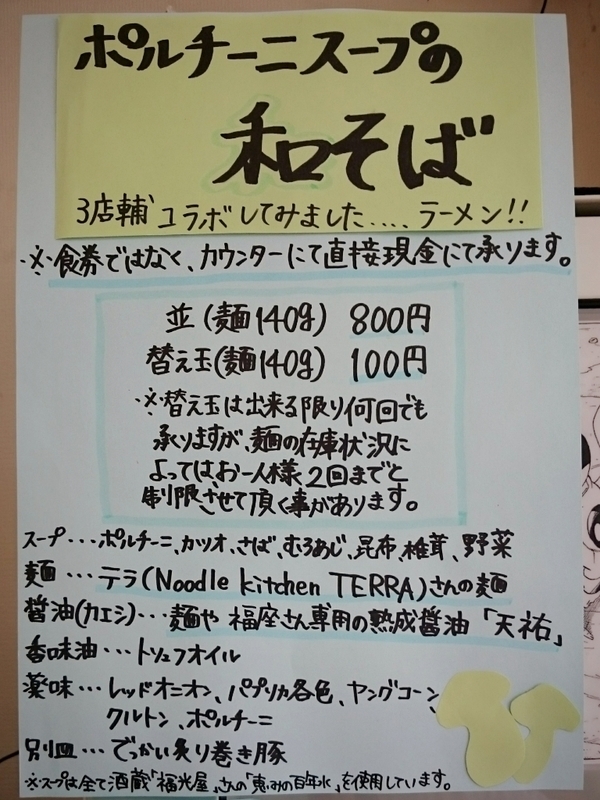 ポルチーニスープの
和そば
3店輔コラボしてみました.....ラーメン!!
※食券ではなく、カウンターにて直接現金にて承ります。
並(麺140g) 800円
替え玉(麺140g) 100円
※替え玉は出来る限り何回でも
承りますが、麺の在庫状況に
よってはお一人様2回までと
制限させて頂く事があります。
スープ・・・ポルチーニ、カツオ、さば、むろあじ、昆布、椎茸、野菜
麺・・・テラ(Noodle kitchen TERRA)さんの麺
醤油(カエシ)・・・麺や福座さん専用の熟成醤油「天祐」
香味油・・・トリュフオイル
薬味・・・レッドオニオン、パプリカ各色、ヤングコーン、
クルトン、ポルチーニ
別皿・・・でっかい炙り巻き豚
※スープは全て酒蔵「福光屋」さんの「恵みの百年水」を使用しています。